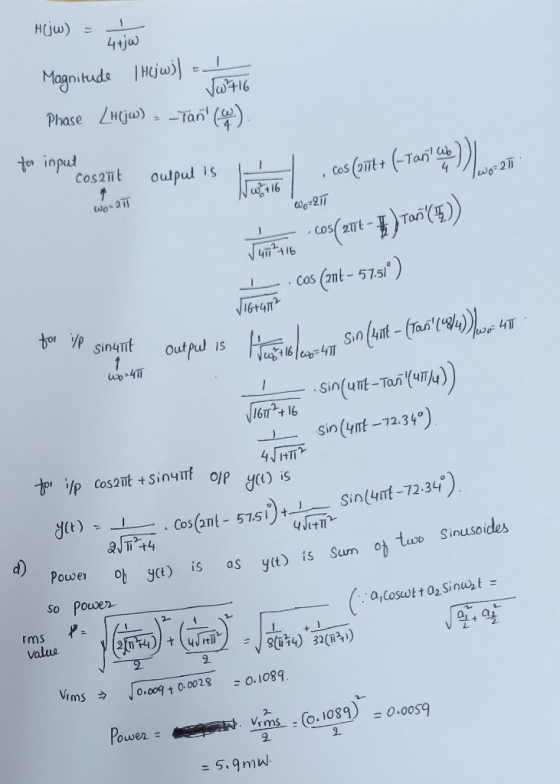 H(jω) = 1/(4+jω)
Magnitude |H(jω)| = 1/√(ω²+16)
Phase ∠H(jω) = -Tan⁻¹(ω/4).
for input cos2πt output is |1/√(ω₀²+16)| ω₀=2π . cos(2πt + (-Tan⁻¹ ω₀/4))|ω₀=2π.
↑
ω₀=2π
1/√(4π²+16) . cos(2πt - Tan⁻¹(π/2))
1/√(16+4π²) . cos(2πt - 57.51°)
for i/p sin4πt output is |1/√(ω₀²+16)|ω₀=4π sin(4πt - (Tan⁻¹(ω₀/4))|ω₀=4π
↑
ω₀=4π
1/√(16π²+16) . sin(4πt - Tan⁻¹(4π/4))
1/(4√(1+π²)) sin(4πt - 72.34°).
for i/p cos2πt + sin4πt o/p y(t) is
y(t) = 1/(2√(π²+4)) . cos(2πt - 57.51°) + 1/(4√(1+π²)) sin(4πt - 72.34°).
d) Power of y(t) is as y(t) is sum of two sinusoides
so power
rms value P = √((1/(2√(π²+4)))²/2 + (1/(4√(1+π²)))²/2) = √(1/(8(π²+4)) + 1/(32(π²+1))) (∵ a₁cosωt + a₂sinω₂t =
√(a₁²/2 + a₂²/2)
Vrms ⇒ √(0.009 + 0.0028) = 0.1089.
Power = . Vrms²/2 = (0.1089)²/2 = 0.0059
= 5.9mW.